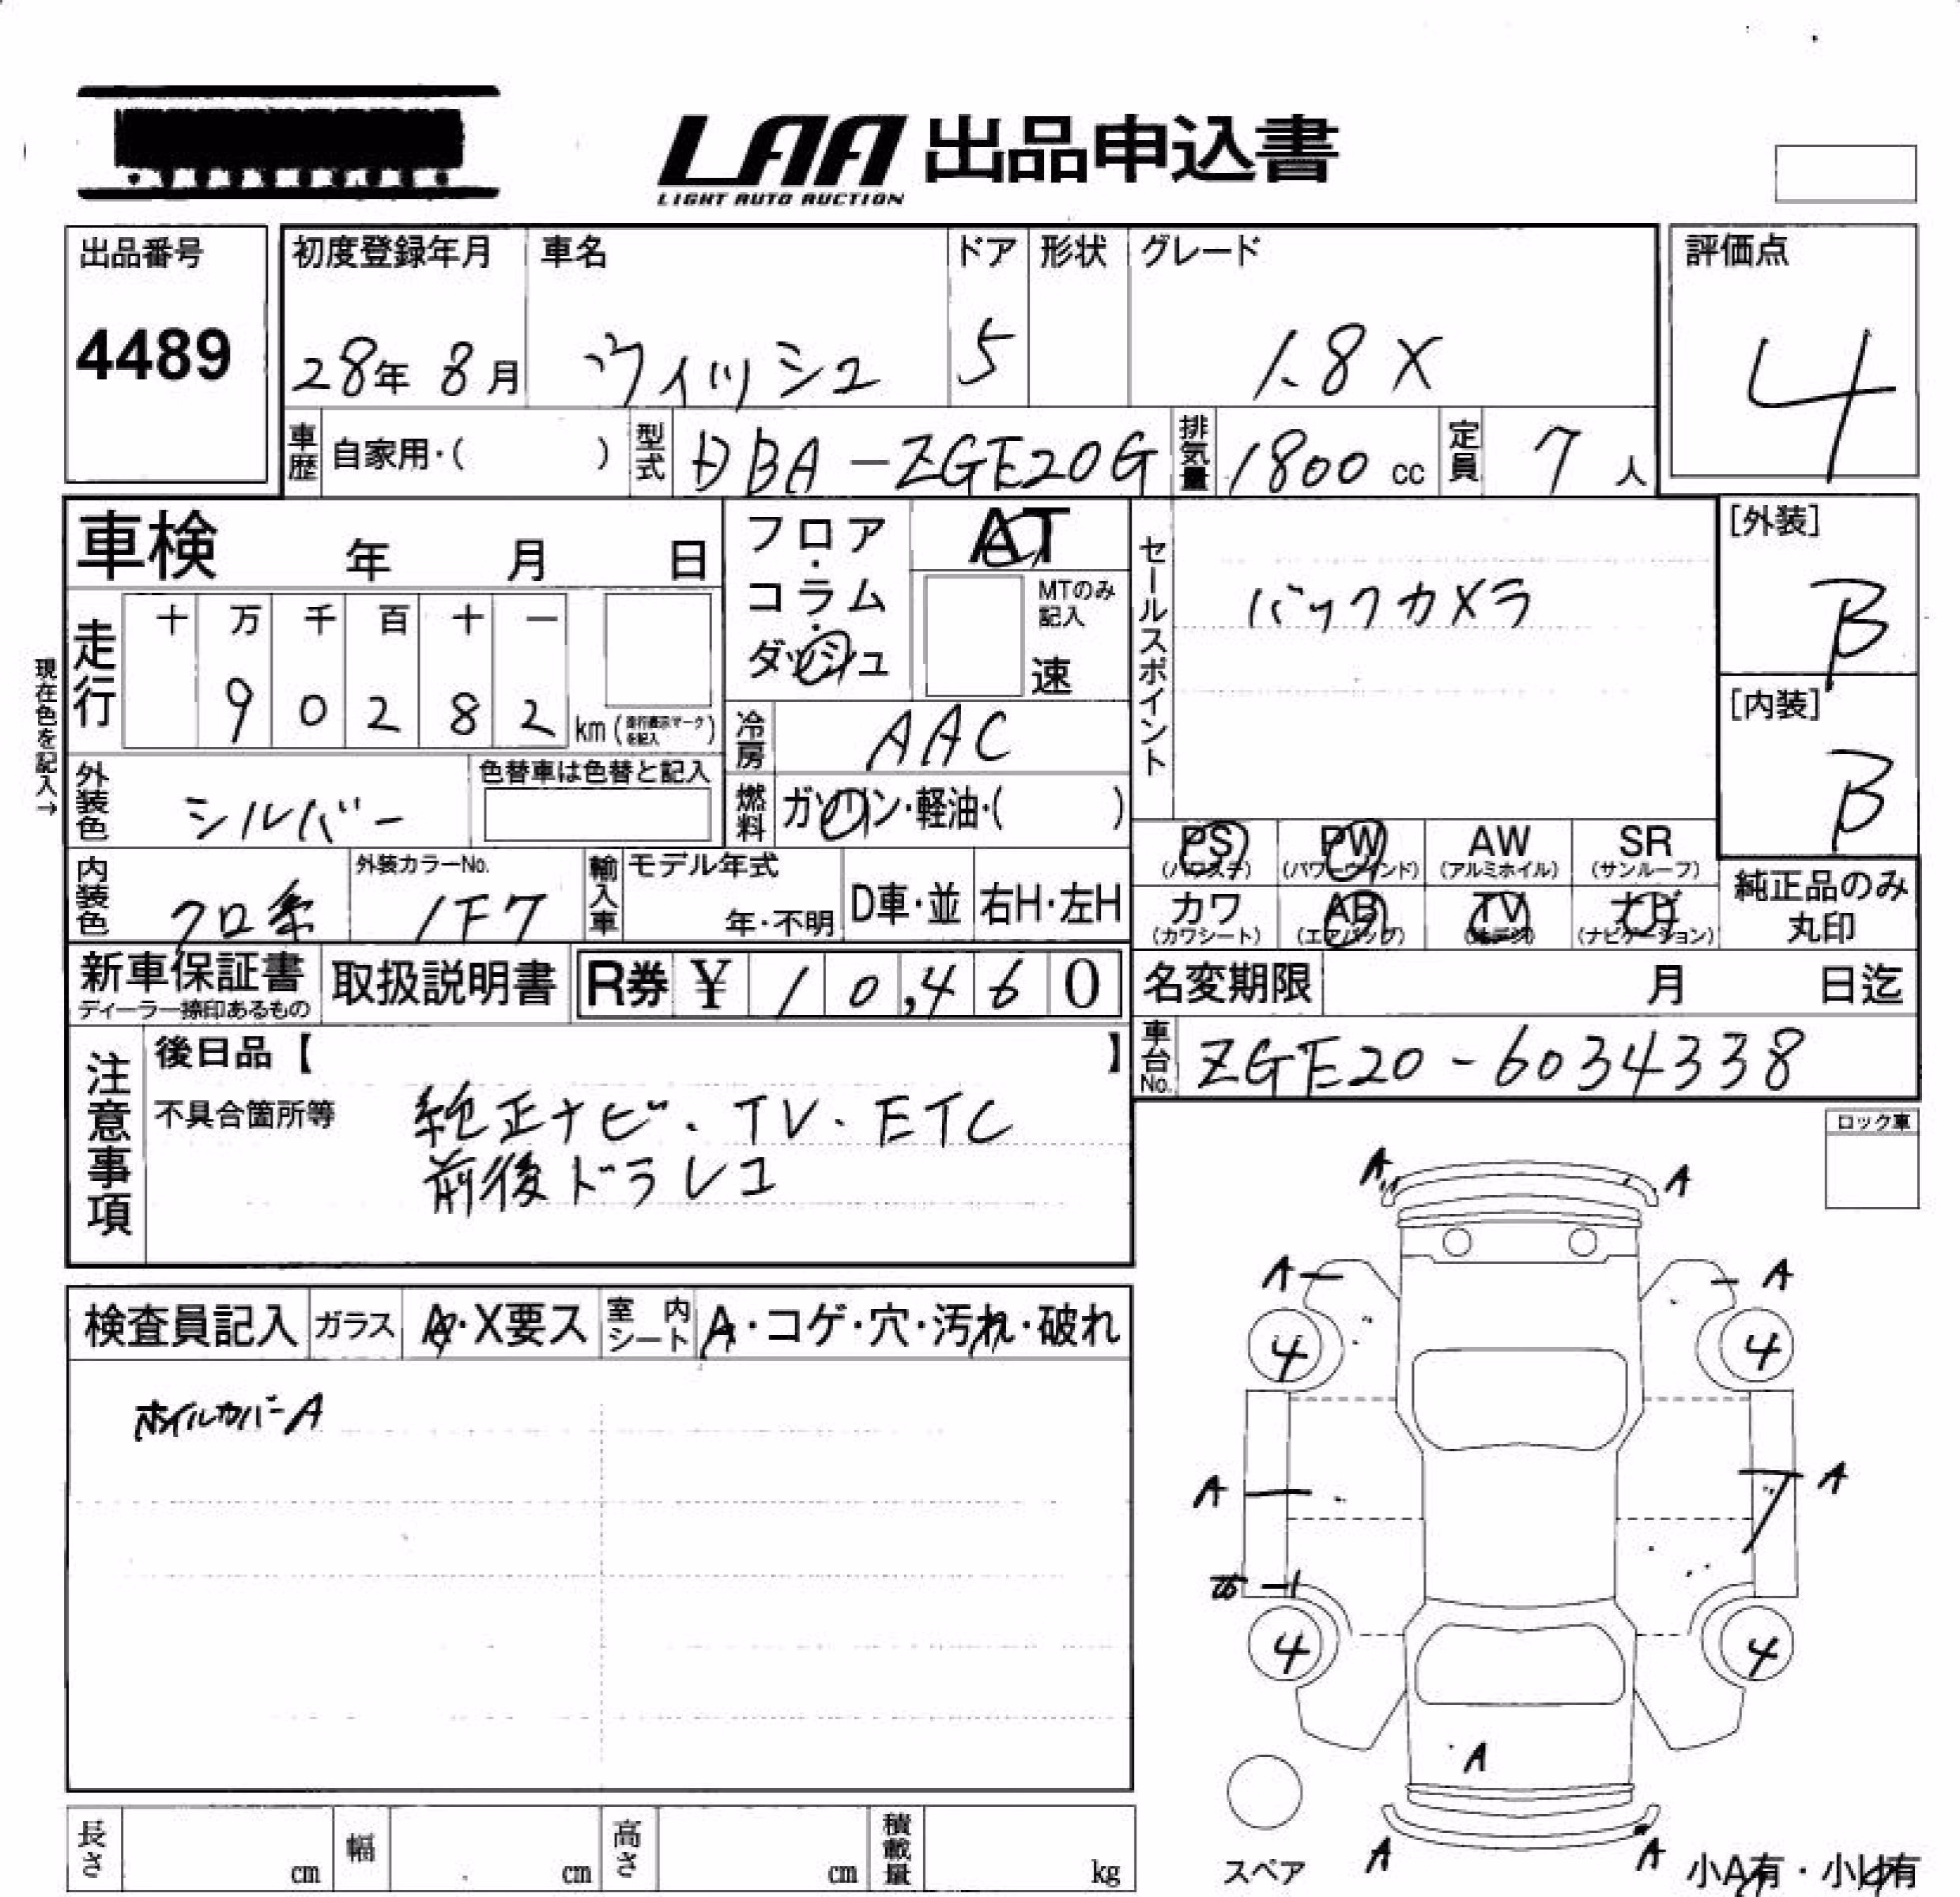 LAA 出品申込書
LIGHT AUTO AUCTION
出品番号
4489
初度登録年月
28年 8月
車名
ヴィッシュ
ドア
5
形状
グレード
1.8X
評価点
4
車歴 自家用・( )
型式 DBA-ZGE20G
排気量 1800 cc
定員 7 人
車検 年 月 日
フロア・コラム・ダッシュ
AT
MTのみ記入
速
セールスポイント
バックカメラ
[外装]
B
[内装]
B
現在色を記入→
走行
十 万 千 百 十 一
9 0 2 8 2 km (走行表示マークを記入)
冷房 AAC
外装色 シルバー
色替車は色替と記入
燃料 ガソリン・軽油・( )
PS (パワステ)
PW (パワーウィンド)
AW (アルミホイル)
SR (サンルーフ)
カワ (カワシート)
AB (エアバッグ)
TV
ナビ (ナビゲーション)
純正品のみ丸印
内装色 クロ系
外装カラーNo. 1F7
輸入車
モデル年式
年・不明
D車・並
右H・左H
新車保証書
ディーラー捺印あるもの
取扱説明書
R券 ¥ 10,460
名変期限 月 日迄
車台No. ZGE20-6034338
注意事項
後日品【 】
不具合箇所等
純正ナビ・TV・ETC
前後ドラレコ
ロック車
検査員記入
ガラス A・X要ス
室内シート A・コゲ・穴・汚れ・破れ
ホイルカバーA
A A
A A
4 4
A A
4 4
A
スペア
A A
小A有・小U有
長さ cm
幅 cm
高さ cm
積載量 kg